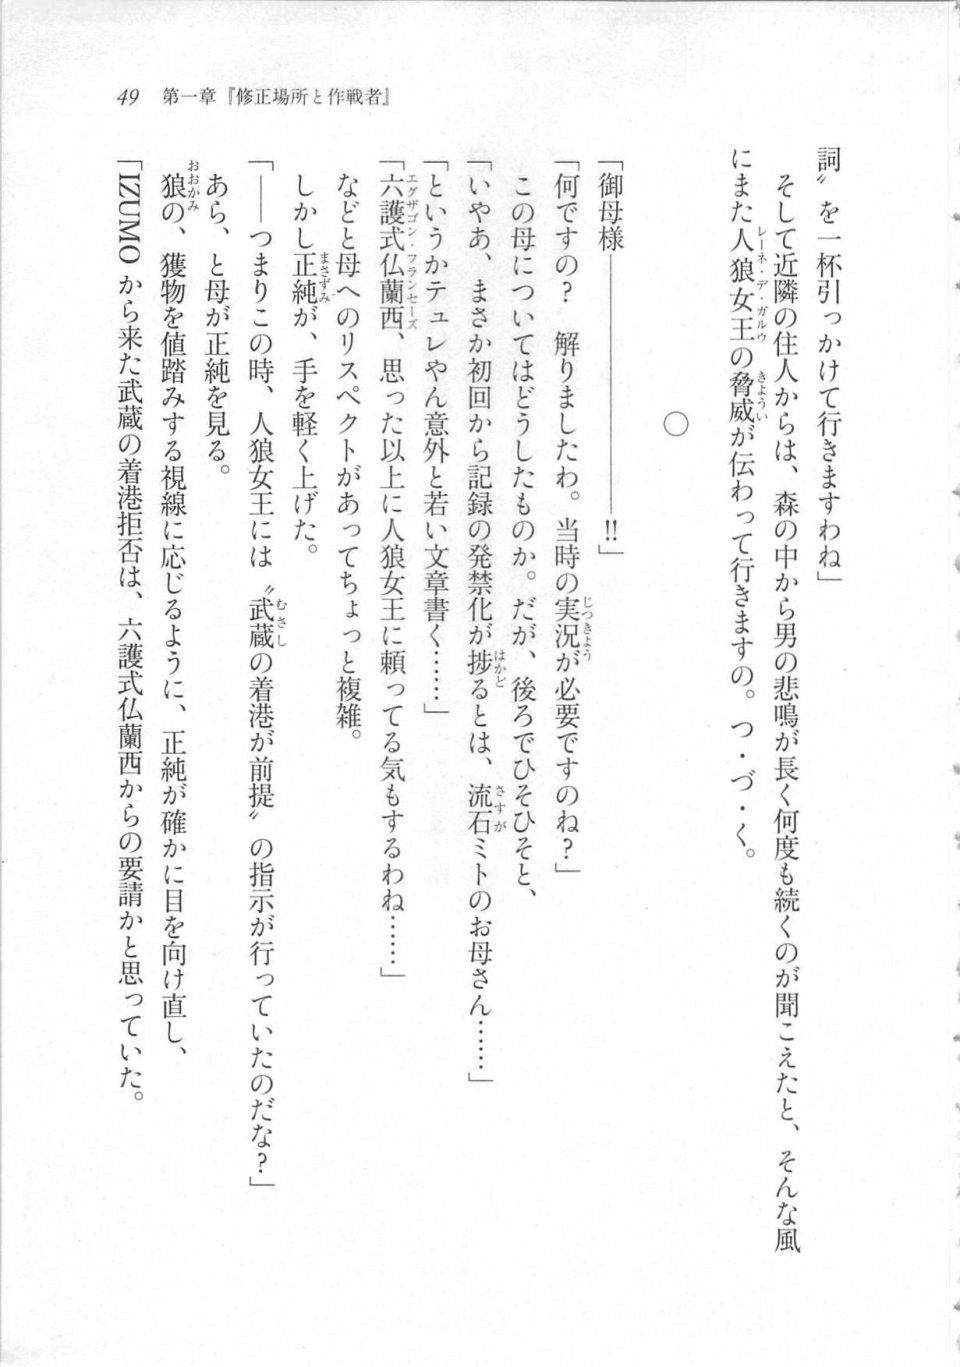 49　第一章『修正場所と作戦者』
詞〟を一杯引っかけて行きますわね」
　そして近隣の住人からは、森の中から男の悲鳴が長く何度も続くのが聞こえたと、そんな風
にまた人狼女王の脅威が伝わって行きますの。つ・づ・く。
○
「御母様――――――――――!!」
「何ですの？　解りましたわ。当時の実況が必要ですのね？」
　この母についてはどうしたものか。だが、後ろでひそひそと、
「いやあ、まさか初回から記録の発禁化が捗るとは、流石ミトのお母さん……」
「というかテュレやん意外と若い文章書く……」
「六護式仏蘭西、思った以上に人狼女王に頼ってる気もするわね……」
　などと母へのリスペクトがあってちょっと複雑。
　しかし正純が、手を軽く上げた。
「――つまりこの時、人狼女王には〝武蔵の着港が前提〟の指示が行っていたのだな？」
　あら、と母が正純を見る。
　狼の、獲物を値踏みする視線に応じるように、正純が確かに目を向け直し、
「IZUMOから来た武蔵の着港拒否は、六護式仏蘭西からの要請かと思っていた。